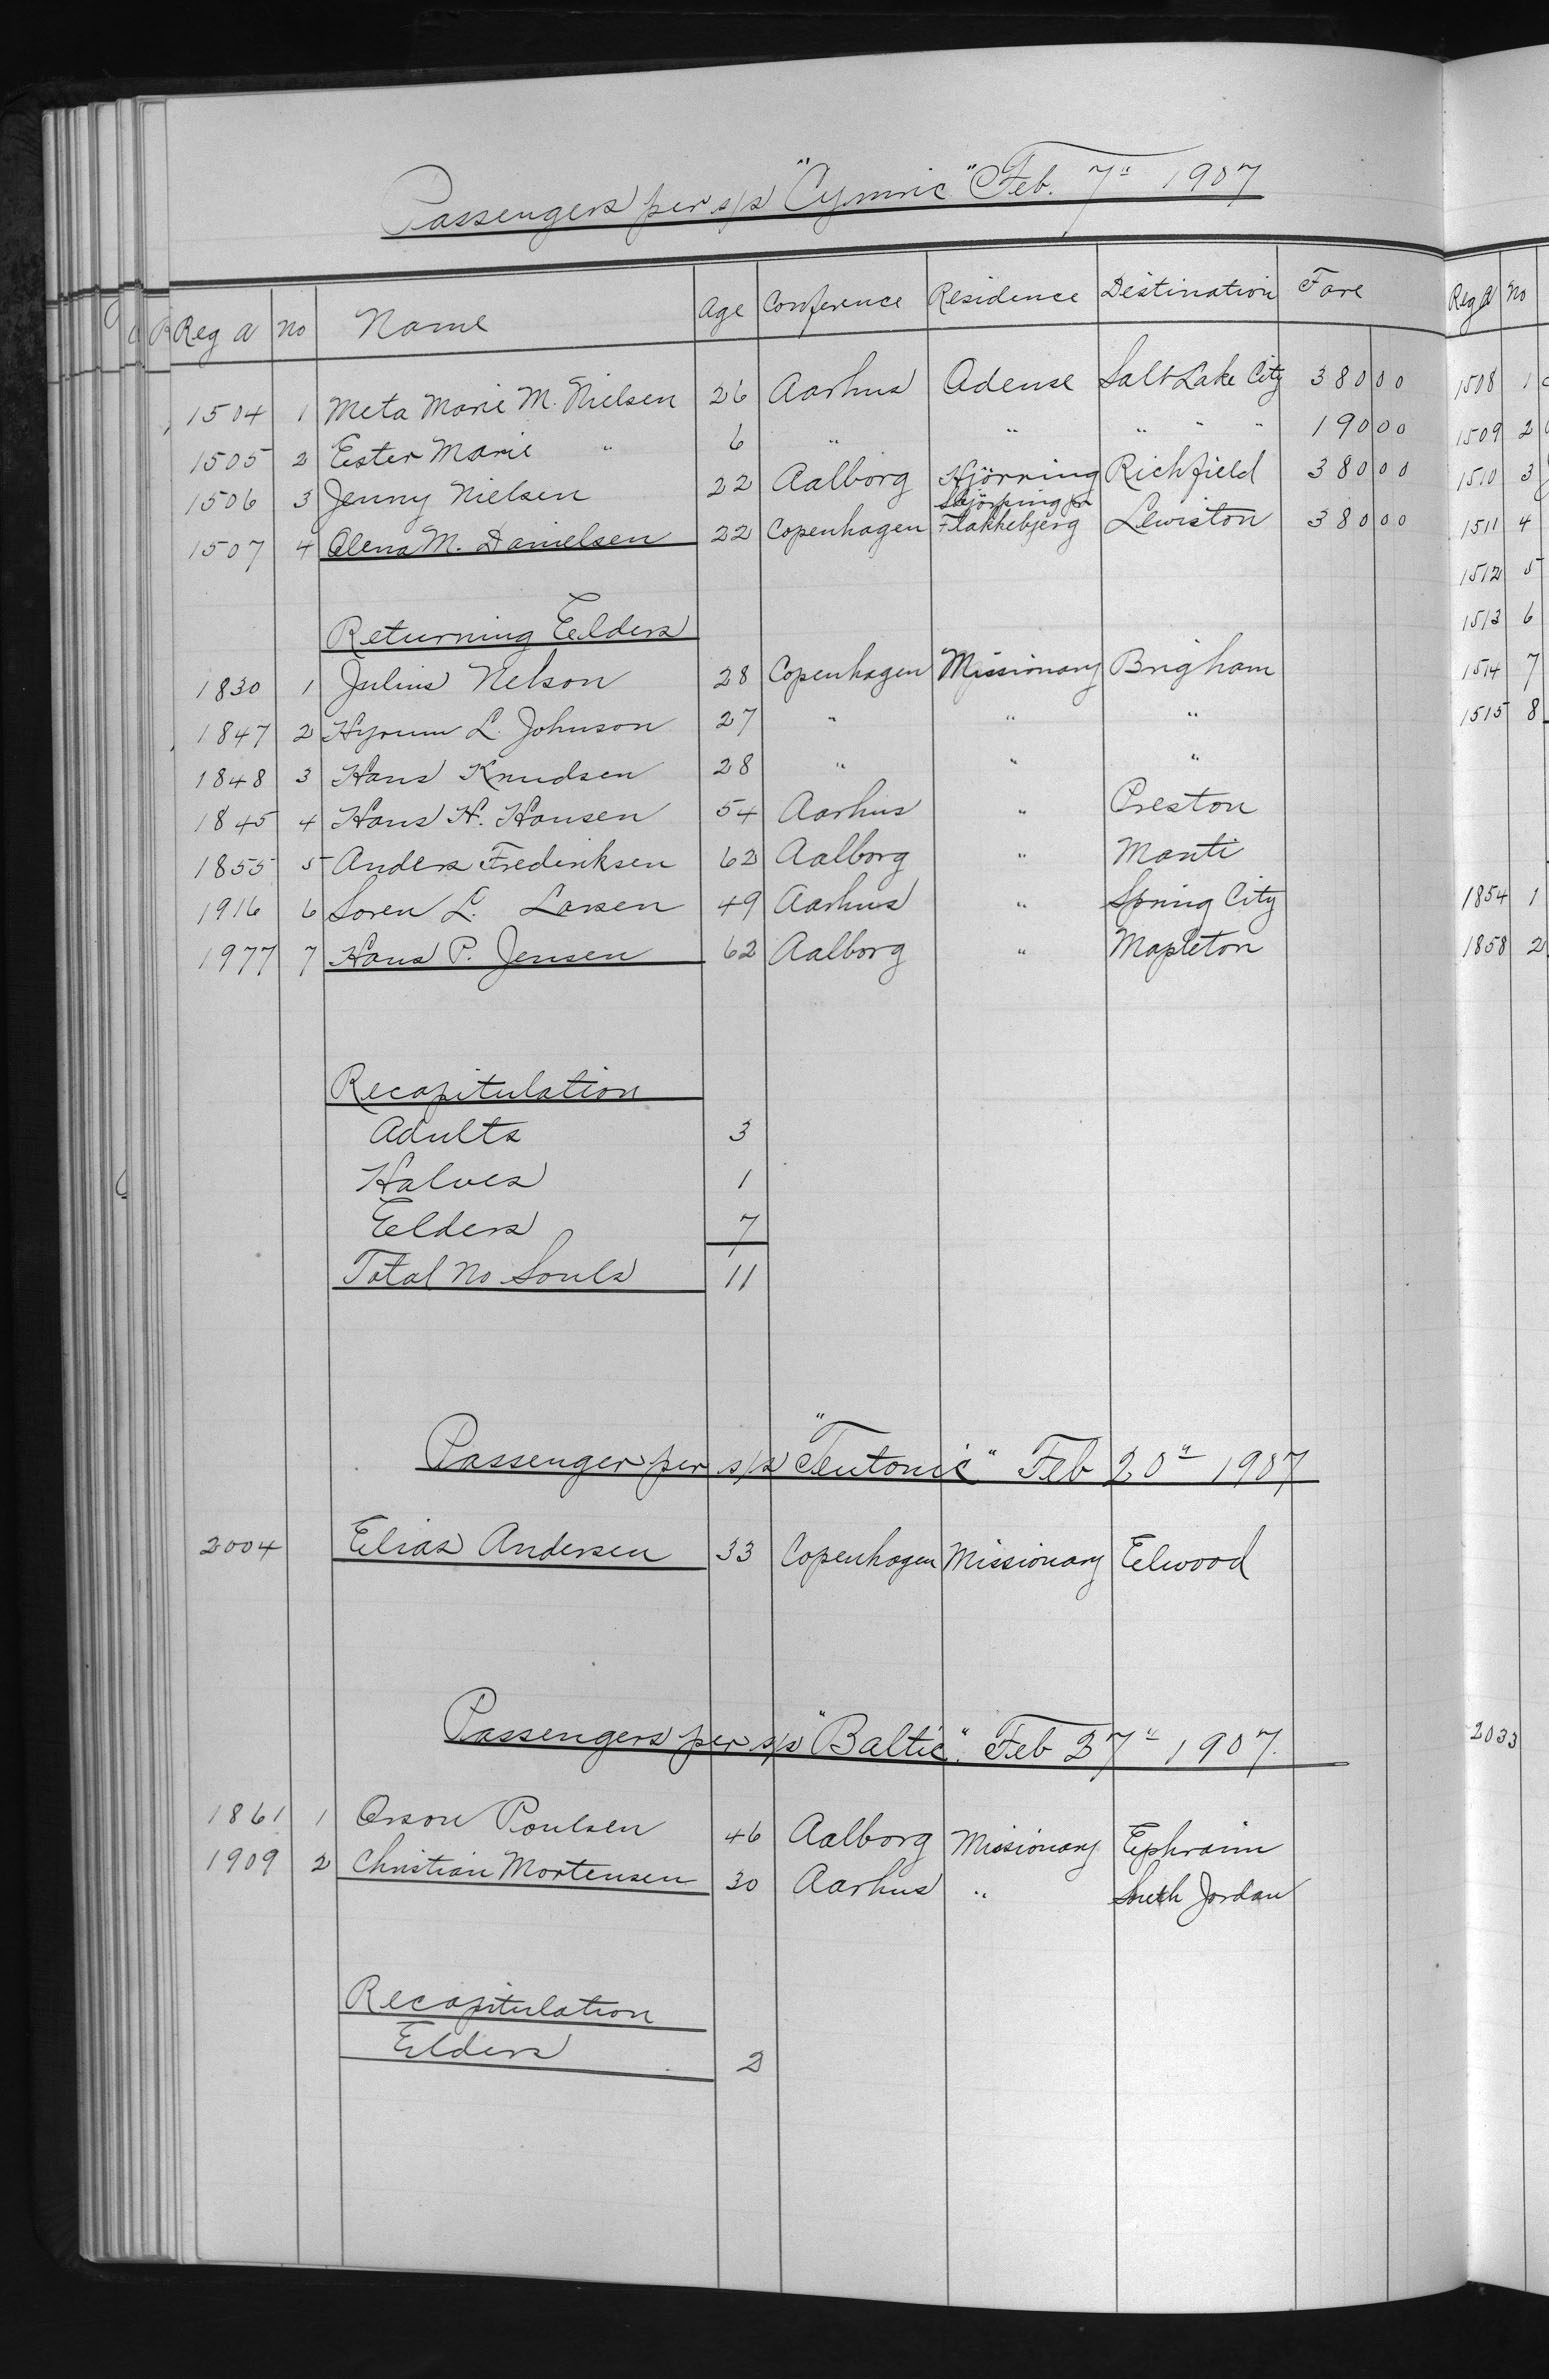 Passengers per s/s "Cymric" Feb. 7" 1907
Reg A No Name Age Conference Residence Destination Fare
1504 1 Meta Marie M. Nielsen 26 Aarhus Odense Salt Lake City 380 00
1505 2 Ester Marie " 6 " " " " " 190 00
1506 3 Jenny Nielsen 22 Aalborg Hjörring Richfield 380 00
1507 4 Olena M. Danielsen 22 Copenhagen Flakkebjerg Lewiston 380 00
Returning Elders
1830 1 Julius Nelson 28 Copenhagen Missionary Brigham
1847 2 Hyrum L. Johnson 27 " " "
1848 3 Hans Knudsen 28 " " "
1845 4 Hans H. Hansen 54 Aarhus " Preston
1855 5 Anders Frederiksen 62 Aalborg " Manti
1916 6 Soren L. Larsen 49 Aarhus " Spring City
1977 7 Hans P. Jensen 62 Aalborg " Mapleton
Recapitulation
Adults 3
Halves 1
Elders 7
Total No Souls 11
Passenger per s/s "Teutonic" Feb 20" 1907
2004 Elias Andersen 33 Copenhagen Missionary Elwood
Passengers per s/s "Baltic". Feb 27" 1907.
1861 1 Orson Poulsen 46 Aalborg Missionary Ephraim
1909 2 Christian Mortensen 30 Aarhus " South Jordan
Recapitulation
Elders 2
Reg A No
1508 1
1509 2
1510 3
1511 4
1512 5
1513 6
1514 7
1515 8
1854 1
1858 2
2033